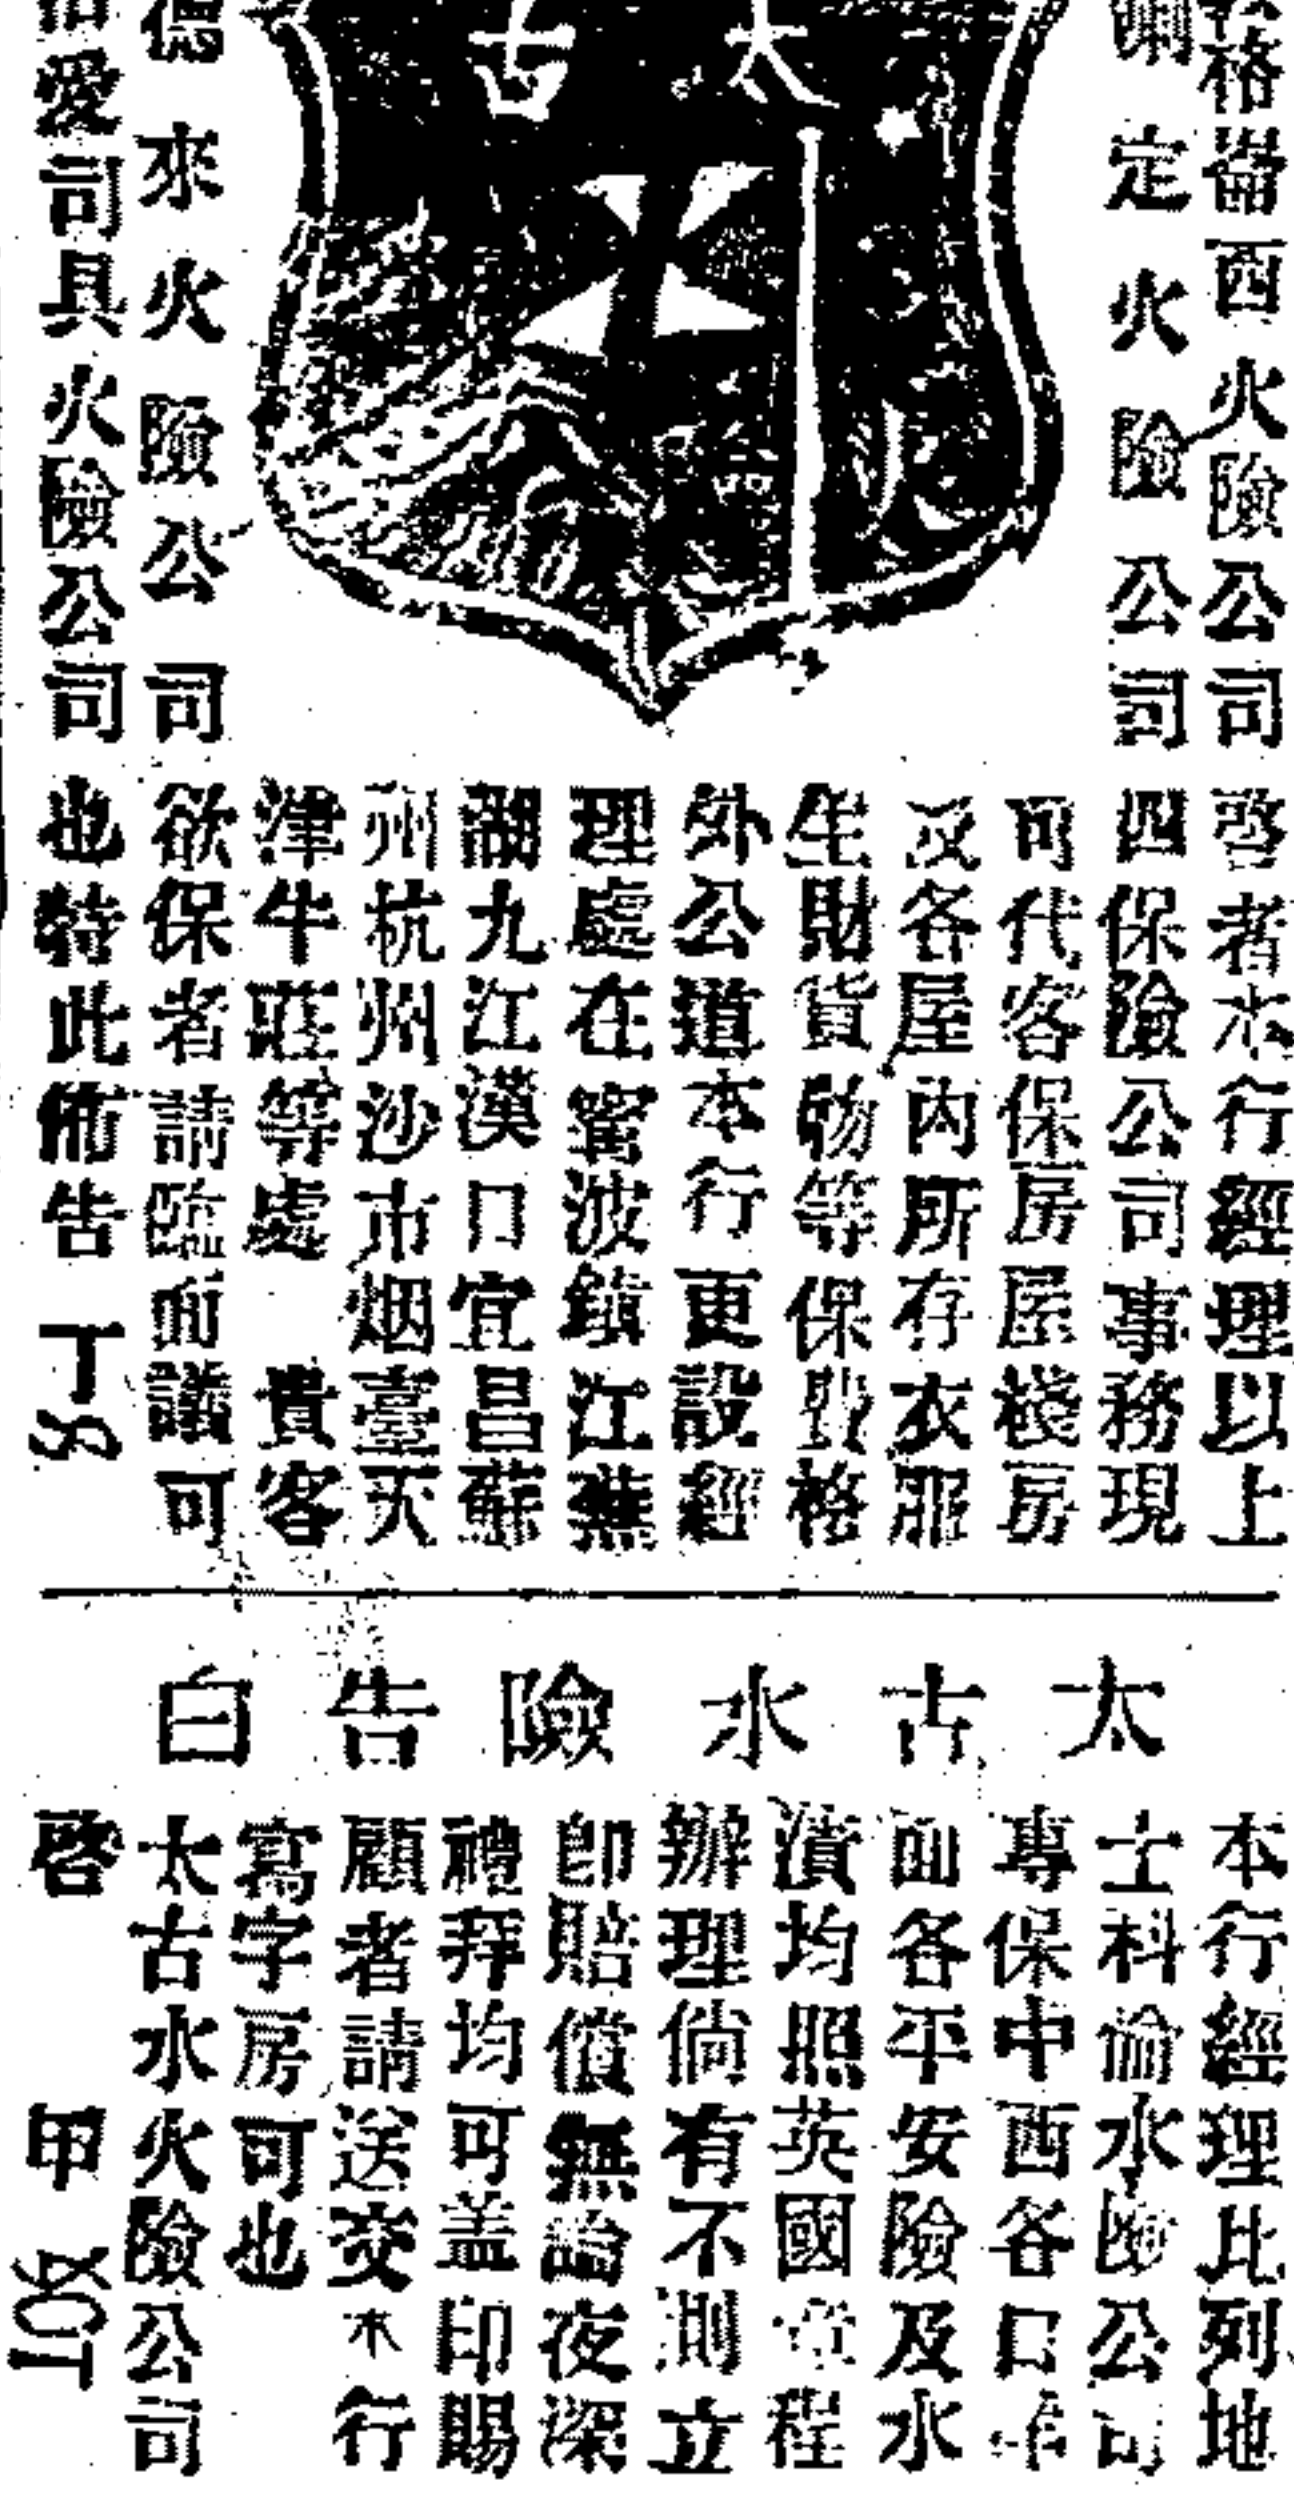 格崙西火險公司
定火險公司
太古
德來火險公司
愛司具火險公司
啓者本行經理以上
四保險公司事務現
可代客保房屋棧房
及各屋內所存衣服
生財貨物等保費格
外公道本行更設經
理處在寗波鎮江蕪
湖九江漢口宜昌蘇
州杭州沙市烟臺天
津牛莊等處 貴客
欲保者請臨面議可
也特此佈告 丁
太古水險告白
本行經理比列地
士科倫水險公司
專保中西各口
面各平安險及水
漬均照英國章程
辦理倘有不測立
即賠償無論夜深
禮拜均可盖印賜
顧者請送交本行
寫字房可也
太古水火險公司
啓 甲